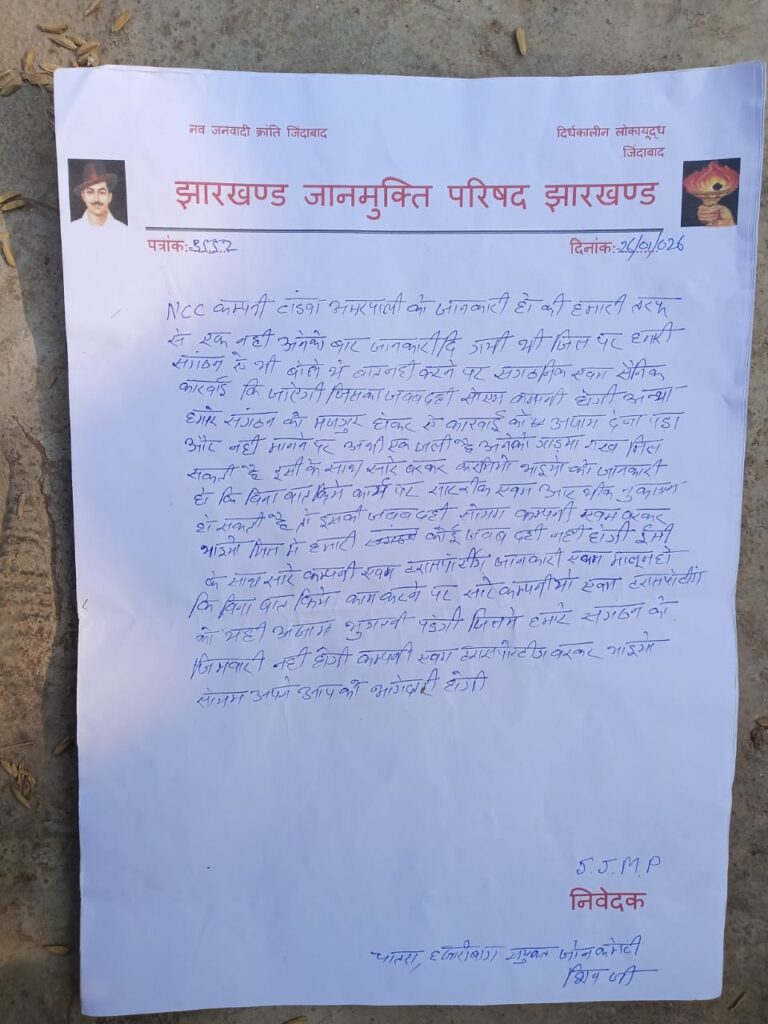 नव जनवादी क्रांति जिंदाबाद
दिर्घकालीन लोकायूद्ध
जिंदाबाद
झारखण्ड जानमुक्ति परिषद झारखण्ड
पत्रांक:
दिनांक: 26/01/026
NCC कम्पनी टांडवा अमरपाली के जानकारी हो की हमारी तरफ
से एक नही अनेको बार जानकारी दि गयी थी जिस पर हमारी
संगठन से भी बोले थे बात नही करने पर संगठनिक एवम सैनिक
कारवाई कि जाऐगी जिसका जवबदही सोयम कम्पनी होगी अन्था
हमारे संगठन को मजगुर होकर से कारवाई को अजाम देना पडा
और नही मानने पर अभी एक जली है अनेको गाड़ीया राख मिल
सकती है इसी के साथ सारे वरकर करमियो भाइयो को जानकारी
हो कि बिना बात किये कार्य पर सारनीक एवम आर थीक नुकासान
हो सकती है तो इसकी जवबदही सोयम कम्पनी एवम वरकर
भाइयो जिस मे हमारी कोई जवब दही नही होगी ईसी
के साथ सारे कम्पनी एवम टरासपोर्टीग जानकारी एवम मालूम हो
कि बिना बात किये काम करने पर सारे कम्पनीयो एवम टरासपोर्टीग
को यही अजाम भुगतनी पडेगी जिसमे हमारे संगठन को
जिमवारी नही होगी कम्पनी एवम टरासपोर्टीज वरकर भाइयो
सोयम अपने आप को भागेदारी होगी
J.J.M.P
निवेदक
चातरा, हजारीबाग संयुक्त जोन कमेटी
शिव जी